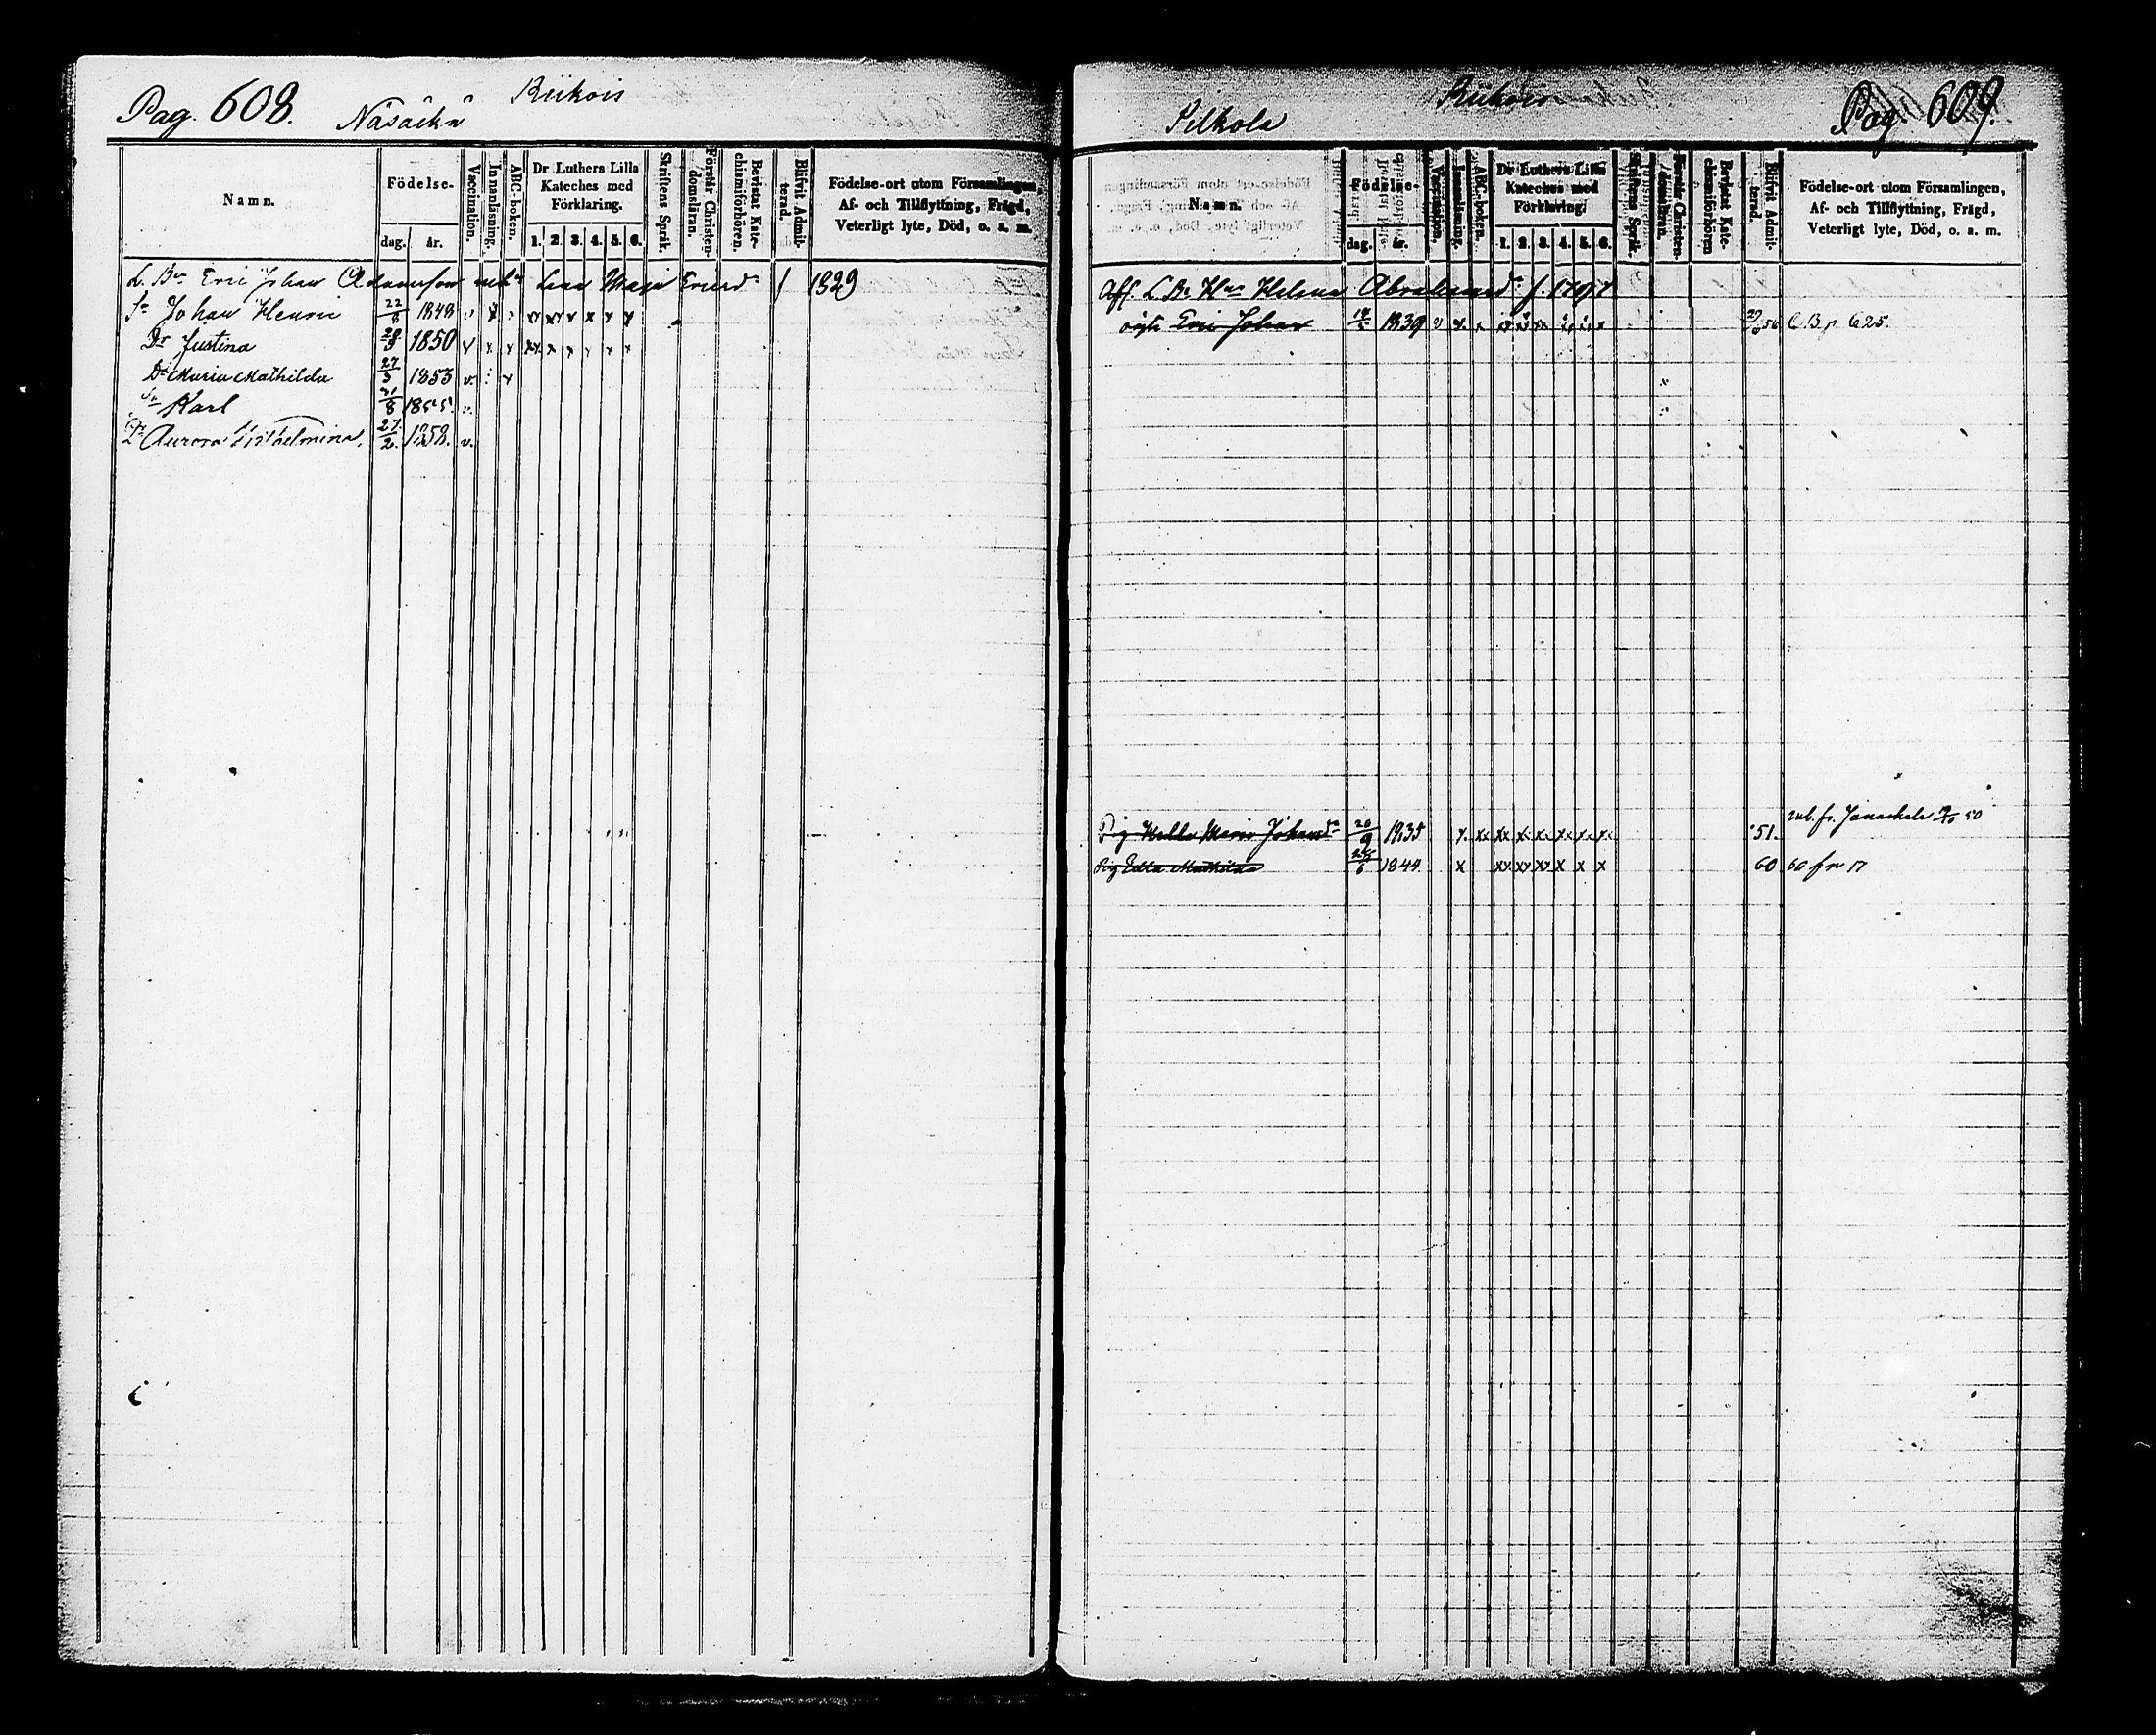 Pag. 608. Näsäckä Riikois
Namn. Födelse- dag. år. Vaccination. Innanläsning. ABC-boken. Dr Luthers Lilla Kateches med Förklaring. 1. 2. 3. 4. 5. 6. Skriftens Språk. Förstår Christendomsläran. Bevistat Katechismiförhören. Blifvit Admitterad. Födelse-ort utom Församlingen, Af- och Tillflyttning, Frägd, Veterligt lyte, Död, o. a. m.
L. Br Eric Johan Adamsson Lena Maja Ericsdr f 1829
Sn Johan Henric 22/8 1848 v x x x x x x
Dr Justina 1850 v x x xx x x x x x
Dr Maria Mathilda 27/3 1853 v.
Sn Karl 31/8 1855. v.
Dr Aurora Wilhelmina, 27/2. 1858. v.
Pilkola Riikois Pag. 609.
Namn. Födelse- dag. år. Vaccination. Innanläsning. ABC-boken. Dr Luthers Lilla Kateches med Förklaring. 1. 2. 3. 4. 5. 6. Skriftens Språk. Förstår Christendomsläran. Bevistat Katechismiförhören Blifvit Admitterad. Födelse-ort utom Församlingen, Af- och Tillflyttning, Frägd, Veterligt lyte, Död, o. a. m.
Aff. L. Br Hu Helena Abrahamsdr f. 1797
Eric Johan 1839 v x x 56 C. B. p. 625.
inb. fr. Janackala 50
Pig Hella Maria Johansdr 20/9 1835 x. xx xx x x x x x 51.
Pig Edla Mathilda 1844 x xx xx xx x x x 60 60 fr 17